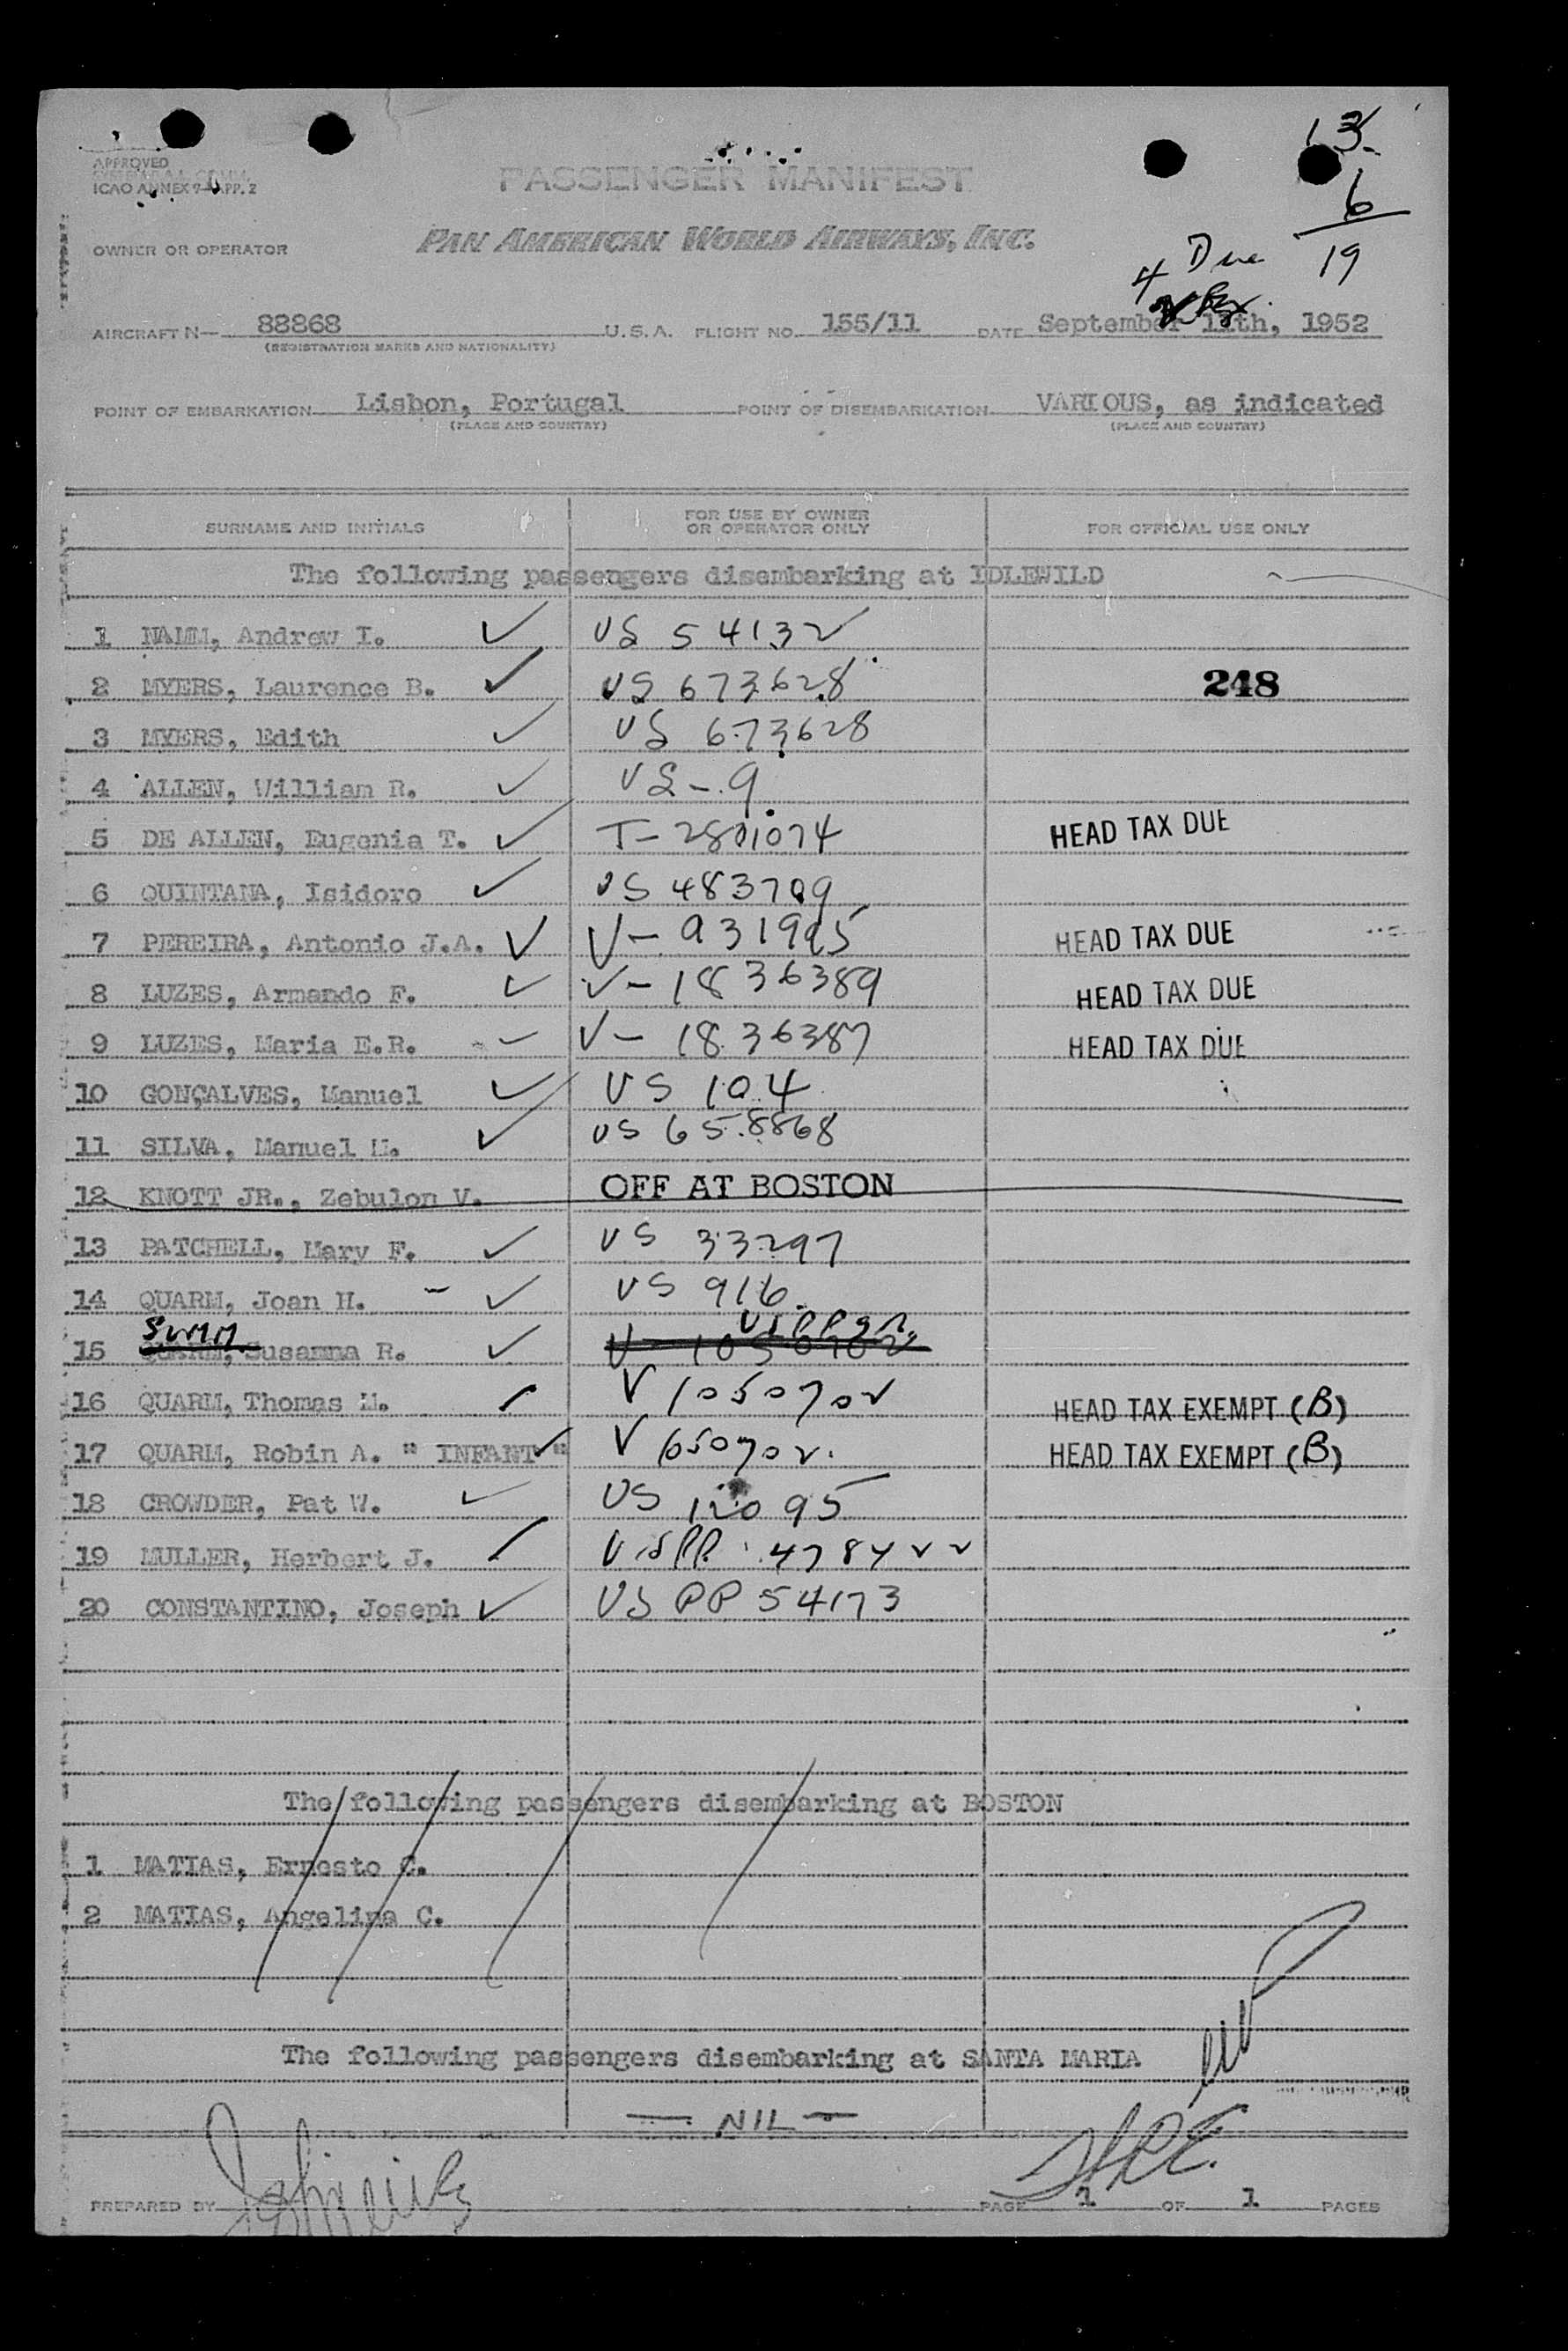 13
6
19
4 Due
APPROVED
ICAO ANNEX 9 APP. 2
PASSENGER MANIFEST
OWNER OR OPERATOR
PAN AMERICAN WORLD AIRWAYS, INC.
AIRCRAFT N— 88868 U.S.A. FLIGHT NO. 155/11 DATE September 11th, 1952
(REGISTRATION MARKS AND NATIONALITY)
POINT OF EMBARKATION Lisbon, Portugal POINT OF DISEMBARKATION VARIOUS, as indicated
(PLACE AND COUNTRY) (PLACE AND COUNTRY)
SURNAME AND INITIALS FOR USE BY OWNER OR OPERATOR ONLY FOR OFFICIAL USE ONLY
The following passengers disembarking at IDLEWILD
1 NAMM, Andrew I. US 54132
2 MYERS, Laurence B. US 673628 248
3 MYERS, Edith US 673628
4 ALLEN, William R. US - 9
5 DE ALLEN, Eugenia T. T- 2801074 HEAD TAX DUE
6 QUINTANA, Isidoro US 483709
7 PEREIRA, Antonio J.A. V- 931995 HEAD TAX DUE
8 LUZES, Armando F. V- 1836389 HEAD TAX DUE
9 LUZES, Maria E.R. V- 1836387 HEAD TAX DUE
10 GONÇALVES, Manuel US 104
11 SILVA, Manuel M. US 658868
12 KNOTT JR., Zebulon V. OFF AT BOSTON
13 PATCHELL, Mary F. US 33297
14 QUARM, Joan H. US 916
15 QUARM, Susanna R. V- 1050702
16 QUARM, Thomas M. V 1050702 HEAD TAX EXEMPT (B)
17 QUARM, Robin A. " INFANT " V 1050702 HEAD TAX EXEMPT (B)
18 CROWDER, Pat W. US 12095
19 MULLER, Herbert J. US PP 478422
20 CONSTANTINO, Joseph US PP 54173
The following passengers disembarking at BOSTON
1 MATIAS, Ernesto C.
2 MATIAS, Angelina C.
The following passengers disembarking at SANTA MARIA
— NIL —
PREPARED BY PAGE 1 OF 1 PAGES